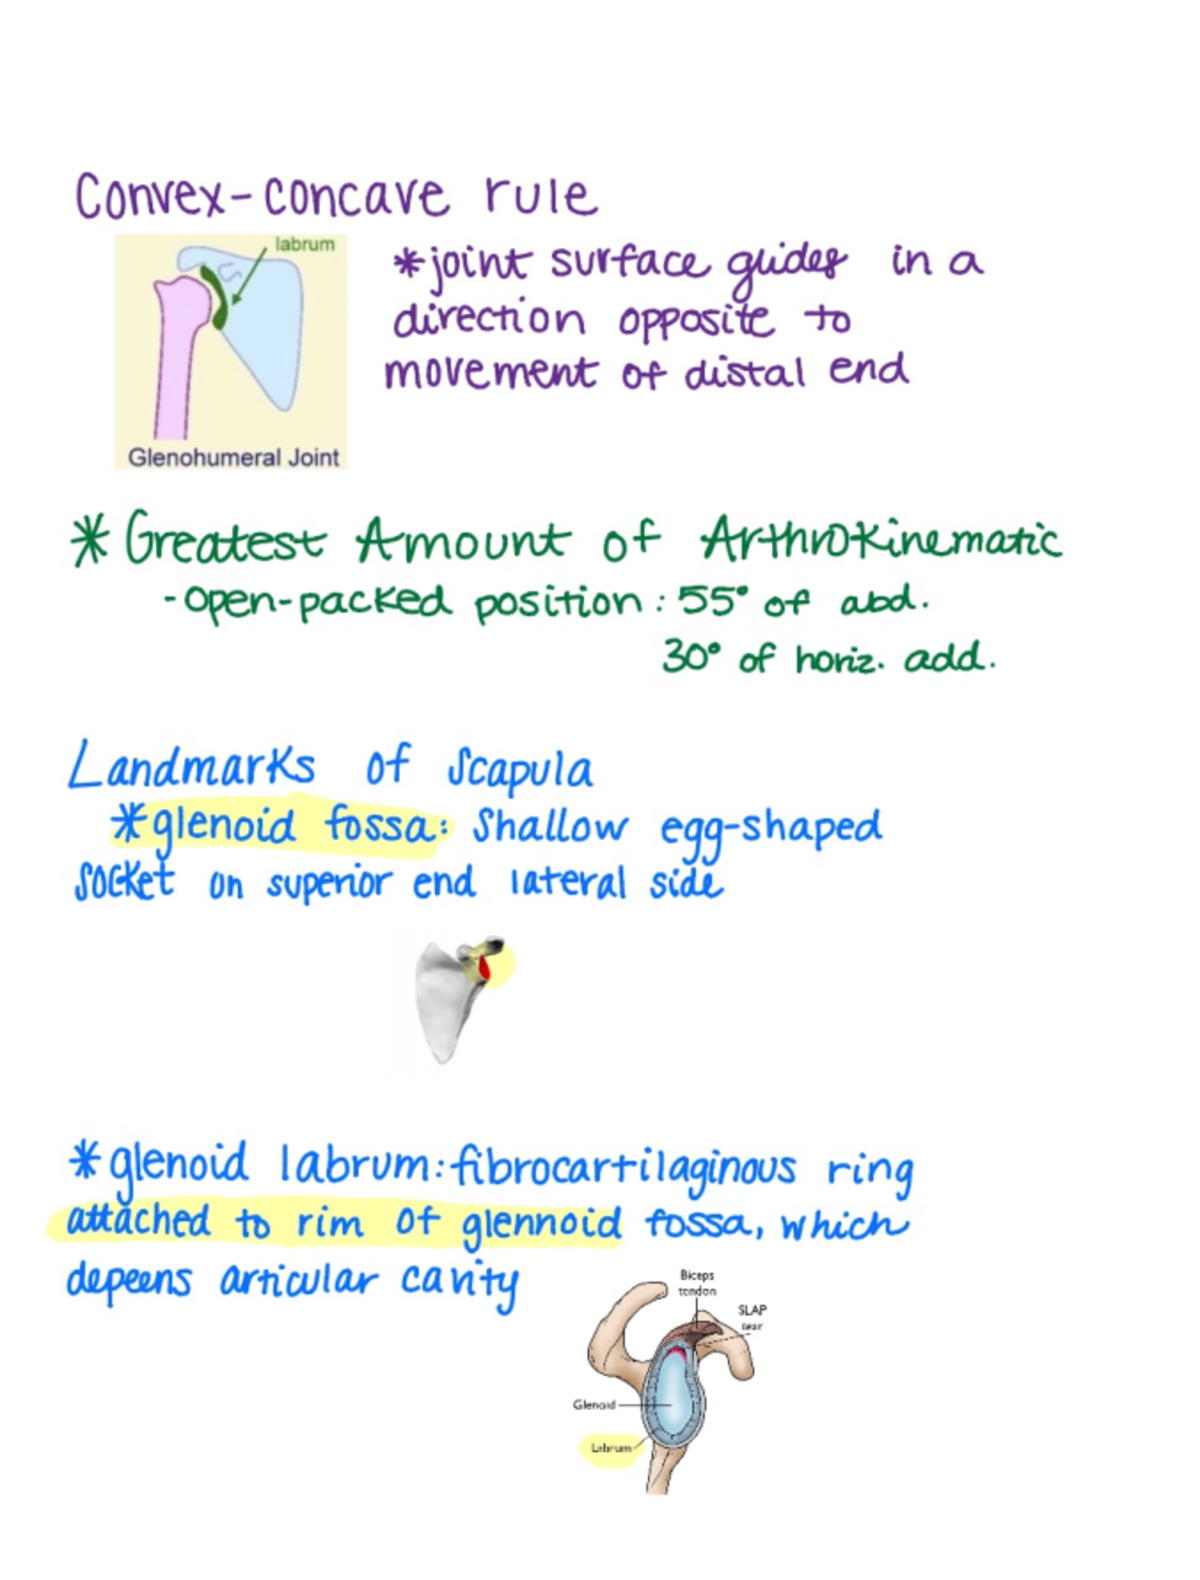 Convex-concave rule
labrum
Glenohumeral Joint
*joint surface guides in a
direction opposite to
movement of distal end
* Greatest Amount of Arthrokinematic
-open-packed position: 55° of abd.
30° of horiz. add.
Landmarks of Scapula
*glenoid fossa: Shallow egg-shaped
socket on superior end lateral side
*glenoid labrum: fibrocartilaginous ring
attached to rim of glennoid fossa, which
depeens articular cavity
Biceps
tendon
SLAP
tear
Glenoid
Labrum